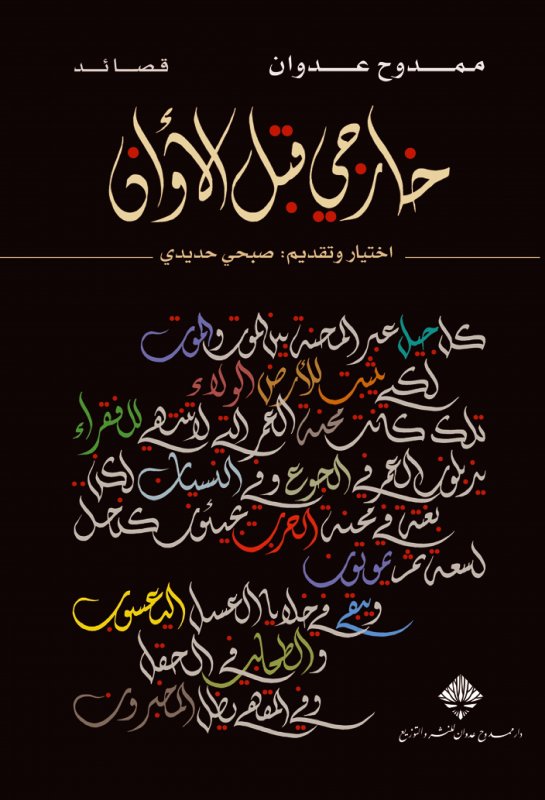 ممدوح عدوان
قصائد
خارجي قبل الأوان
اختيار وتقديم: صبحي حديدي
كل جيل عبر المحنة بين الموت والموت
لكي يثبت للأرض الولاء
تلك كانت محنة العمر التي لا تنتهي للفقراء
ينزلون العمر في الجوع وفي النسيان لكن..
بغتة في محنة الحرب يجيئون كخيل
لسعة ثم يموتون
ويبقى في خلايا العسل اليعسوب
والطحالب في الحقل
وفي المقهى يظل المخبرون
دار ممدوح عدوان للنشر والتوزيع